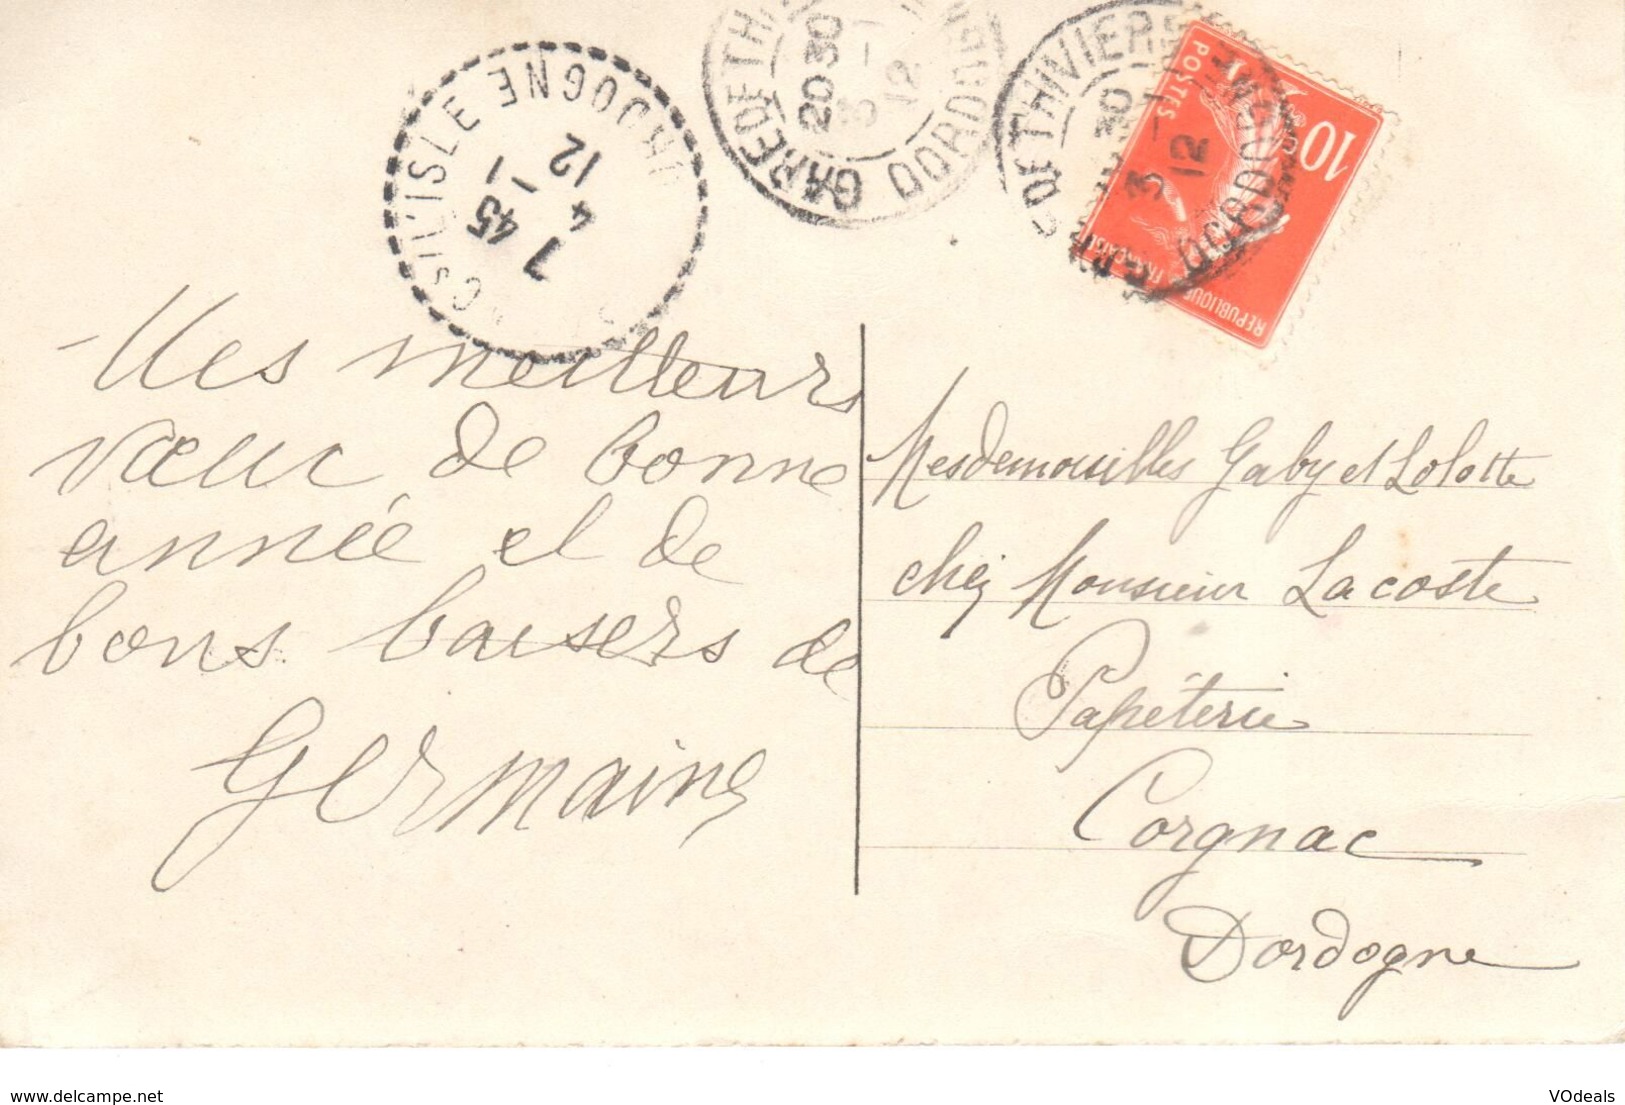 GARE DE THIVIERS
20 30
3 - 1
12
DORDOGNE
DE THIVIERS
30
3 - 1
12
DORDOGNE
10
POSTES
REPUBLIQUE FRANÇAISE
C S/L'ISLE DORDOGNE
7 45
4 - 1
12
Mes meilleurs
vœux de bonne
année et de
bons baisers de
Germaine
Mesdemoiselles Gaby et Lolotte
chez Monsieur Lacoste
Papéterie
Corgnac
Dordogne
www.delcampe.net
VOdeals